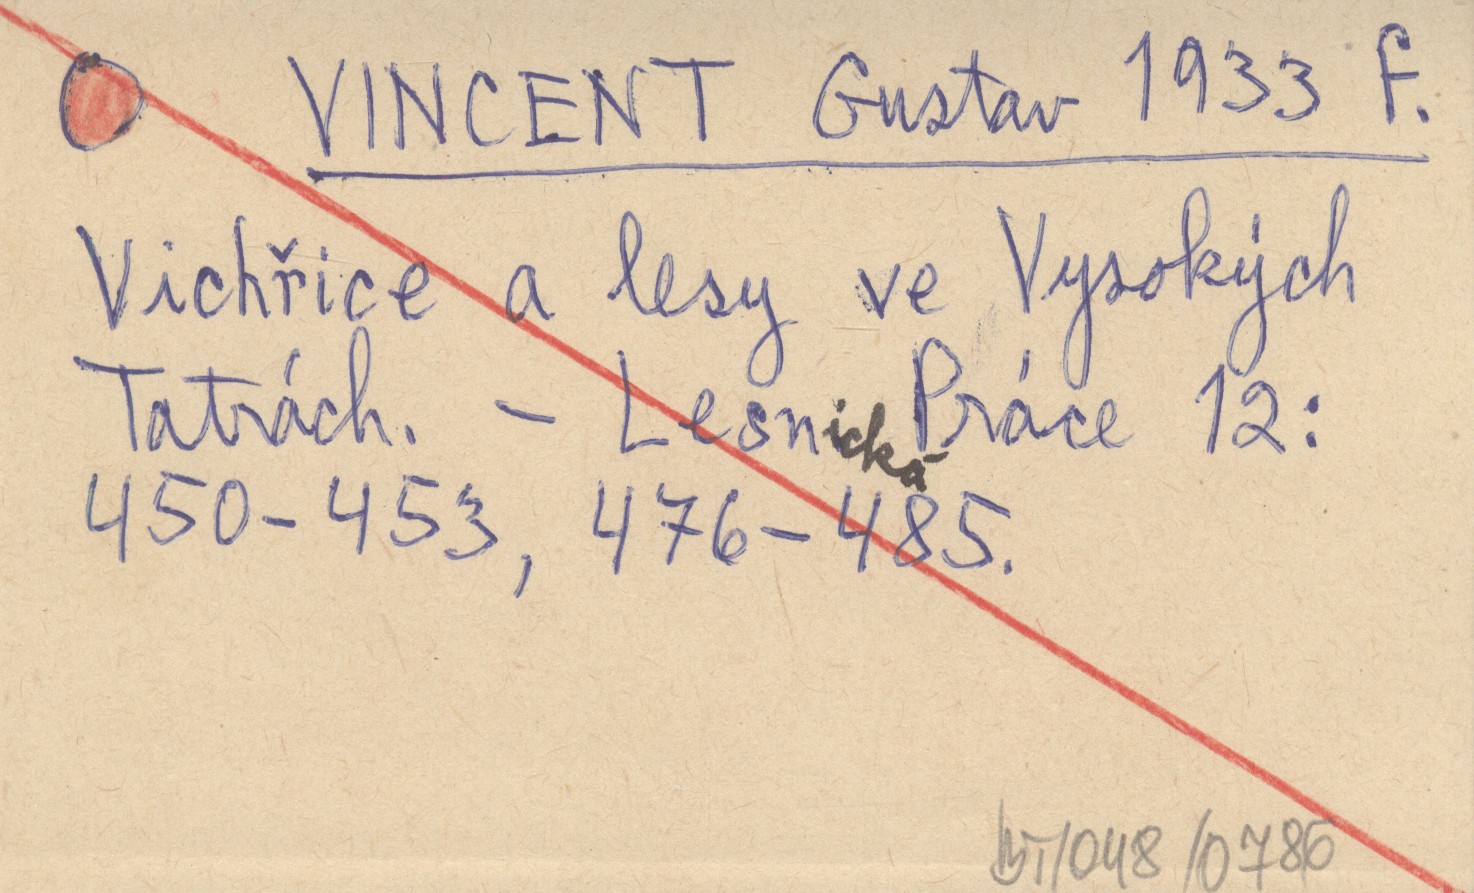 VINCENT Gustav 1933 f.
Vichřice a lesy ve Vysokých
Tatrách. - Lesnická Práce 12:
450-453, 476-485.